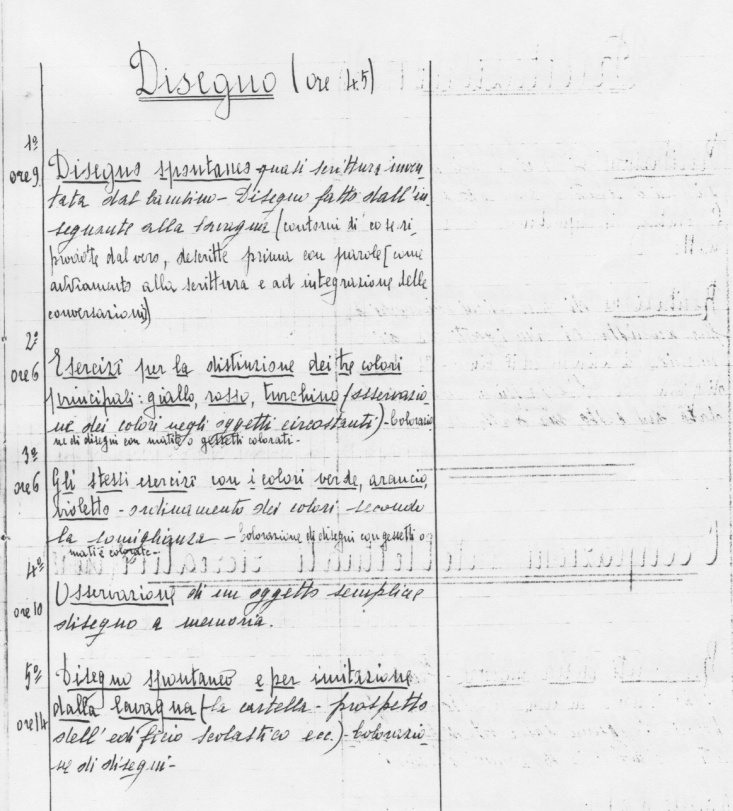 Disegno (ore 45)
1º
ore 9
Disegno spontaneo quasi scrittura inven-
tata dal bambino - Disegno fatto dall'in-
segnante alla lavagna (contorni di cose ri-
prodotte dal vero, descritte prima con parole (come
avviamento alla scrittura e ad integrazione delle
conversazioni)
2º
ore 6
Esercizî per la distinzione dei tre colori
principali: giallo, rosso, turchino (osservazio-
ne dei colori negli oggetti circostanti) - Colorazio
ne di disegni con matite o gessetti colorati -
3º
ore 6
Gli stessi esercizî con i colori verde, arancio,
violetto - ordinamento dei colori secondo
la somiglianza - Colorazione di disegni con gessetti o
matite colorate -
4º
ore 10
Osservazione di un oggetto semplice
disegno a memoria.
5º
ore 14
Disegno spontaneo e per imitazione
dalla lavagna (la cartella - prospetto
dell'edificio scolastico ecc.) - Colorazio-
ne di disegni -